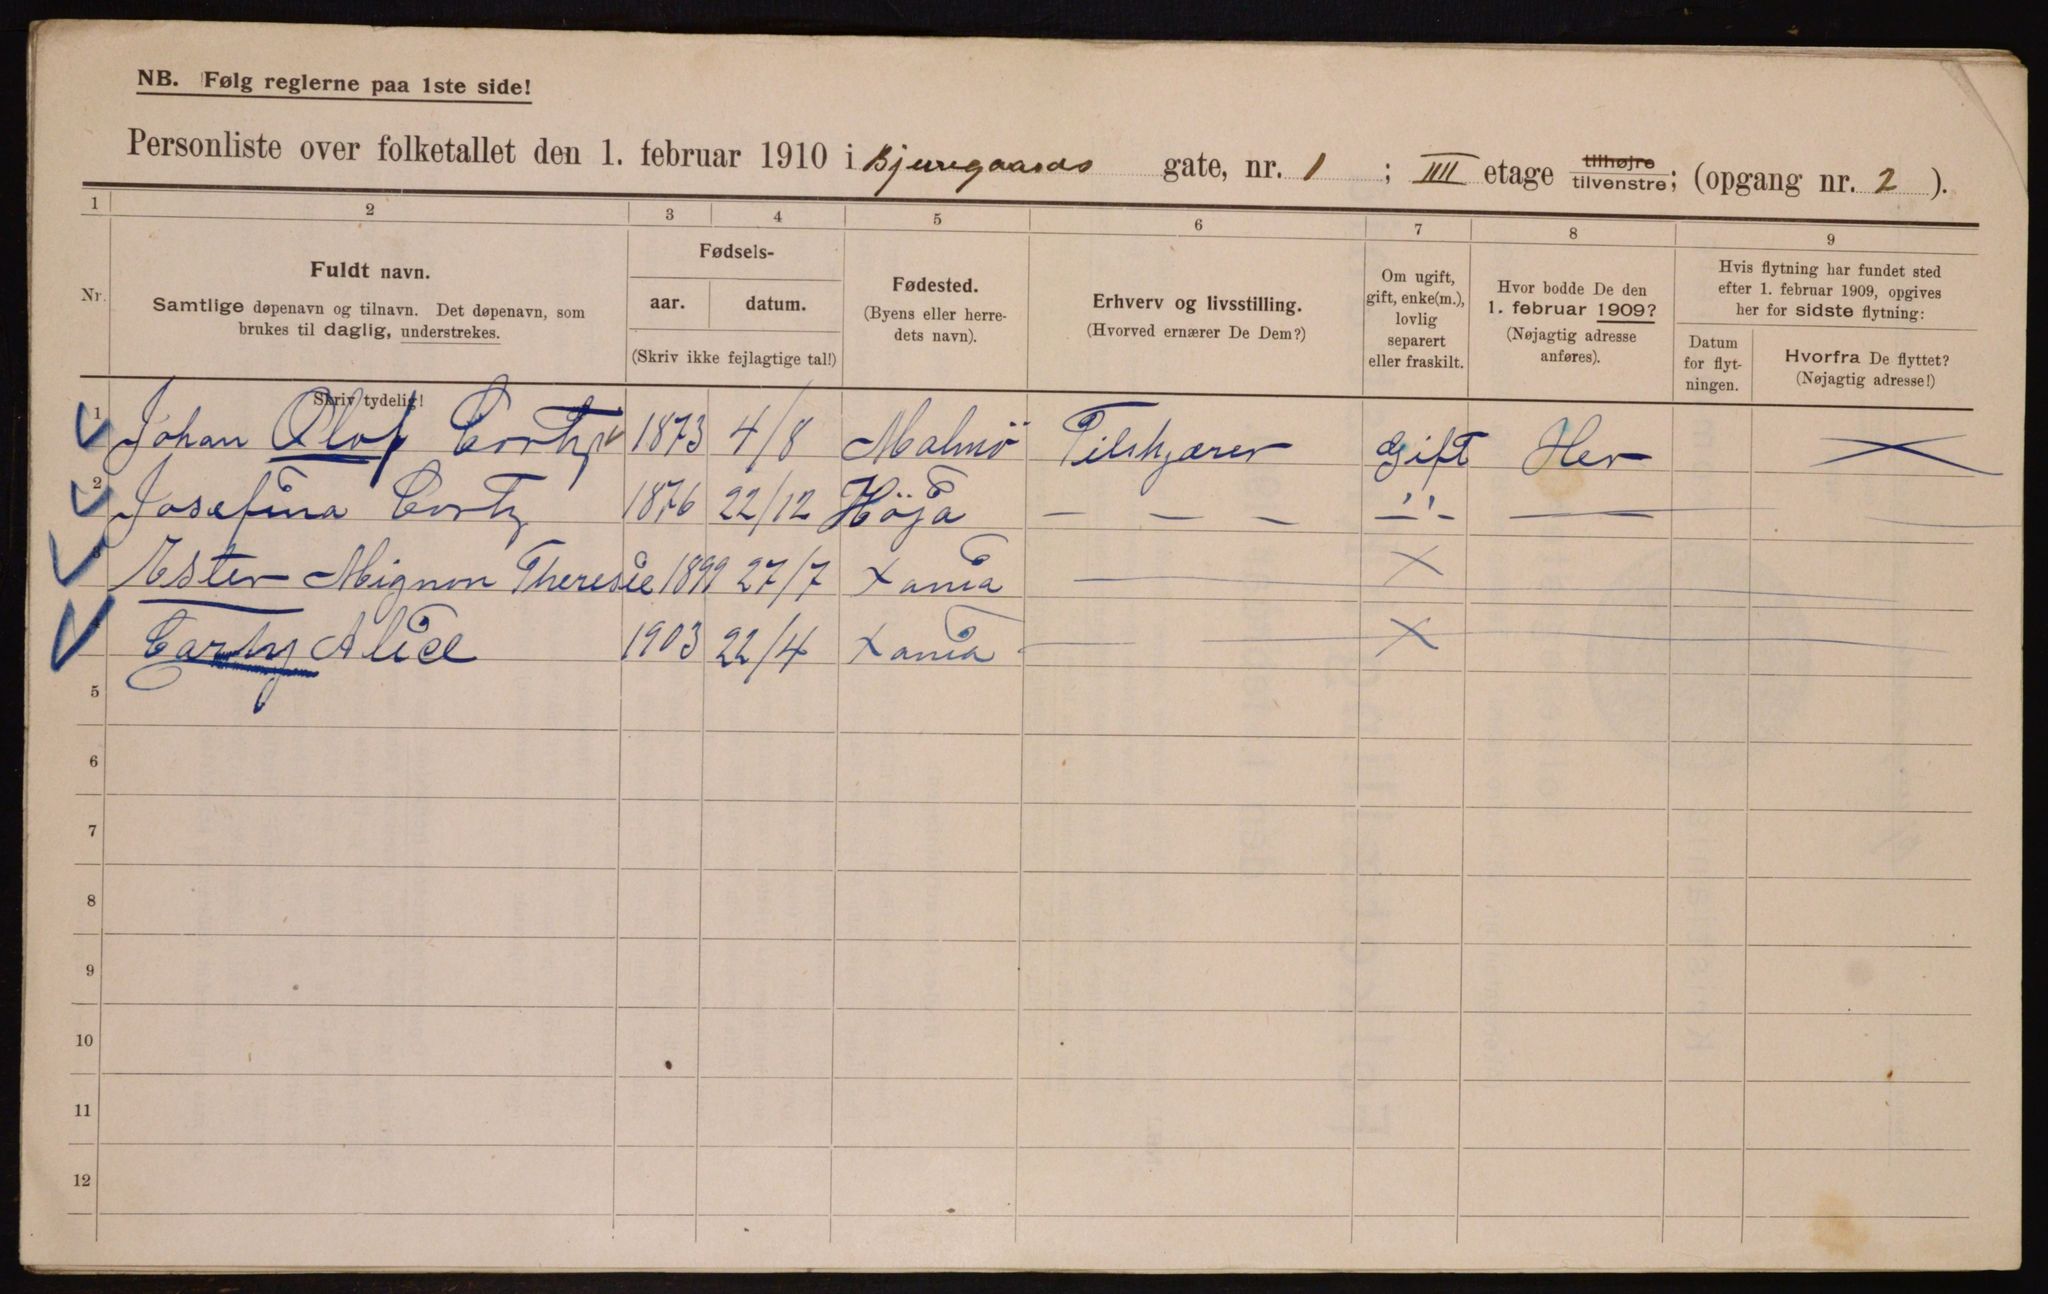 NB. Følg reglerne paa 1ste side!
Personliste over folketallet den 1. februar 1910 i Bjerregaards gate, nr. 1 ; IIII etage tilhøjre tilvenstre; (opgang nr. 2 ).
1 2 3 4 5 6 7 8 9
Nr.
Fuldt navn.
Samtlige døpenavn og tilnavn. Det døpenavn, som
brukes til daglig, understrekes.
Skriv tydelig!
Fødsels-
aar. datum.
(Skriv ikke fejlagtige tal!)
Fødested.
(Byens eller herre-
dets navn).
Erhverv og livsstilling.
(Hvorved ernærer De Dem?)
Om ugift,
gift, enke(m.),
lovlig
separert
eller fraskilt.
Hvor bodde De den
1. februar 1909?
(Nøjagtig adresse
anføres).
Hvis flytning har fundet sted
efter 1. februar 1909, opgives
her for sidste flytning:
Datum
for flyt-
ningen.
Hvorfra De flyttet?
(Nøjagtig adresse!)
1 Johan Olof Cortz 1873 4/8 Malmö Tilskjærer Gift Her
2 Josefina Cortz 1876 22/12 Höja — — — — " — —
3 Ester Mignon Theresie 1899 27/7 Xania — X
Carty Alice 1903 22/4 Xania — X
5
6
7
8
9
10
11
12